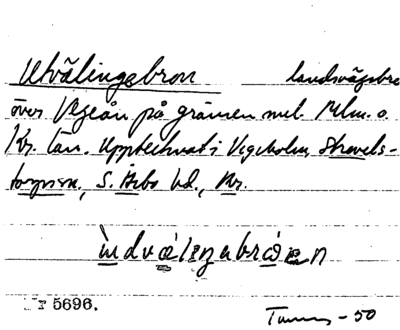 Utvälingebron landsvägsbro
över Vegeån på gränsen mel. Mlm. o.
Kr. län. Upptecknat i Vegeholm, Strövels-
torps sn, S. Åsbo hd., Kr.
5696.
-50